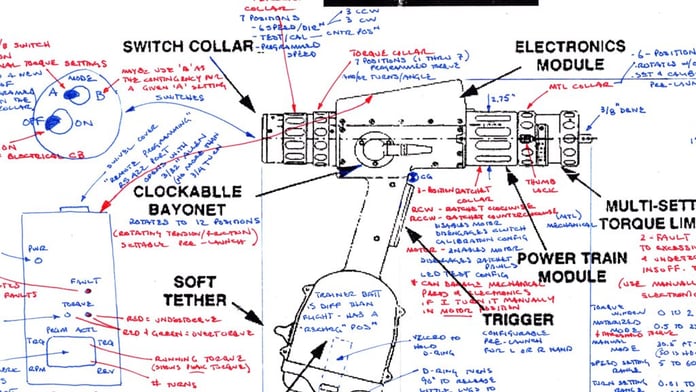 COLLAR
7 POSITIONS
-6 SPEED/DIR"
-TEST/CAL
-PROGRAMMED
SPEED
3 CCW
3 CW
CNTR POS"
SWITCH COLLAR
TORQUE COLLAR
7 POSITIONS (1 THRU 7)
PROGRAMMED TORQUE
AND/OR TURNS/ANGLE
ELECTRONICS
MODULE
6-POSITION
ROTATES
SET & CALIB
PRE-LAUNCH
MTL COLLAR
2.75"
3/8" DRIVE
/B SWITCH
TORQUE SETTINGS
A NEW
OF
IN THE
COLLAR
MODE
A
B
OFF
ON
ELECTRICAL CB
MAYBE USE 'B' AS
THE CONTINGENCY FOR
A GIVEN 'A' SETTING
SWITCHES
SWIVEL COVER
"REMOTE PROGRAMMING"
RS422 PORT
OPENS W/
5/32" ALLEN
(NO MORE THAN
3/4 TURN)
CLOCKABLLE
BAYONET
ROTATES TO 12 POSITIONS
(ROTATING TENSION/FRICTION)
SETTABLE PRE-LAUNCH
CG
3-POSITION RATCHET
COLLAR
RCW - RATCHET CLOCKWISE
RCCW - RATCHET COUNTERCLOCKWISE
DISABLES MOTOR
DISENGAGES CLUTCH
CALIBRATION CONFIG
MOTOR - ENABLES MOTOR
DISENGAGES RATCHET
PAWLS
LED TEST CONFIG
* CAN DAMAGE MECHANICAL
PARTS & ELECTRONICS
IF I TURN IT MANUALLY
IN MOTOR POSITION
THUMB
LOCK
MULTI-SETT
TORQUE LIM
(MTL)
MECHANICAL
2-FAULT
TO EXCESSI
& UNDERTO
INSUFF.
(USE MANUAL
ELECTRONI
POWER TRAIN
MODULE
PWR
FAULT
FAULTS
TORQUE
PRGM ACTL
RED = UNDERTORQUE
RED & GREEN = OVERTORQUE
TRQ
TRQ
RPM
REV
RUNNING TORQUE
(SHOWS PEAK TORQUE)
# TURNS
SOFT
TETHER
TRAINER BATT
IS DIFF THAN
FLIGHT - HAS A
"RECHRG" POS"
TRIGGER
VELCRO TO
HOLD
D-RING
CONFIGURABLE
PRE-LAUNCH
FOR L OR R HAND
D-RING TURNS
90° TO RELEASE
TORQUE
WINDOW
0 TO 2
MOTORIZED
MODE
0.5 TO
& THRESHOLD TORQUE
MANUAL
MODE
SPEED SETTING
RANGE
5 TO 60